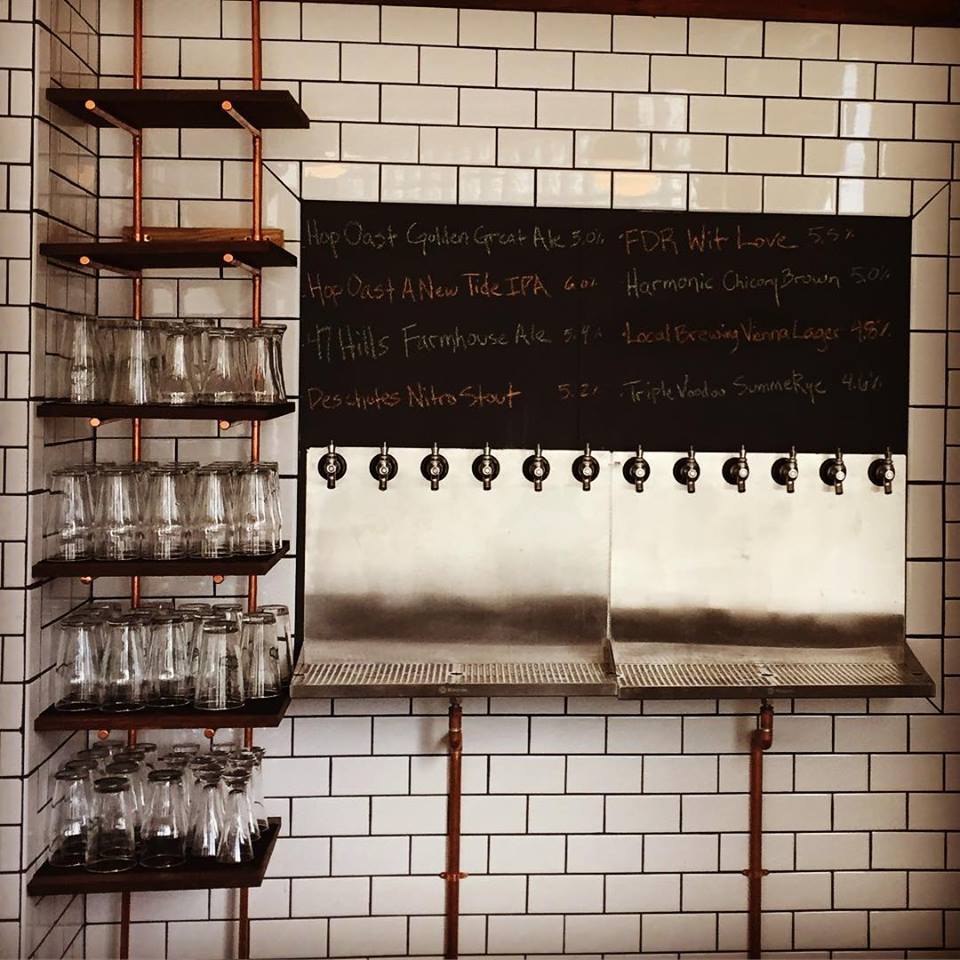 Hop Oast Golden Great Ale 5.0%
Hop Oast A New Tide IPA 6.0%
47 Hills Farmhouse Ale 5.4%
Deschutes Nitro Stout 5.2%
FDR Wit Love 5.5%
Harmonic Chicory Brown 5.0%
Local Brewing Vienna Lager 4.8%
Triple Voodoo SummeRye 4.6%